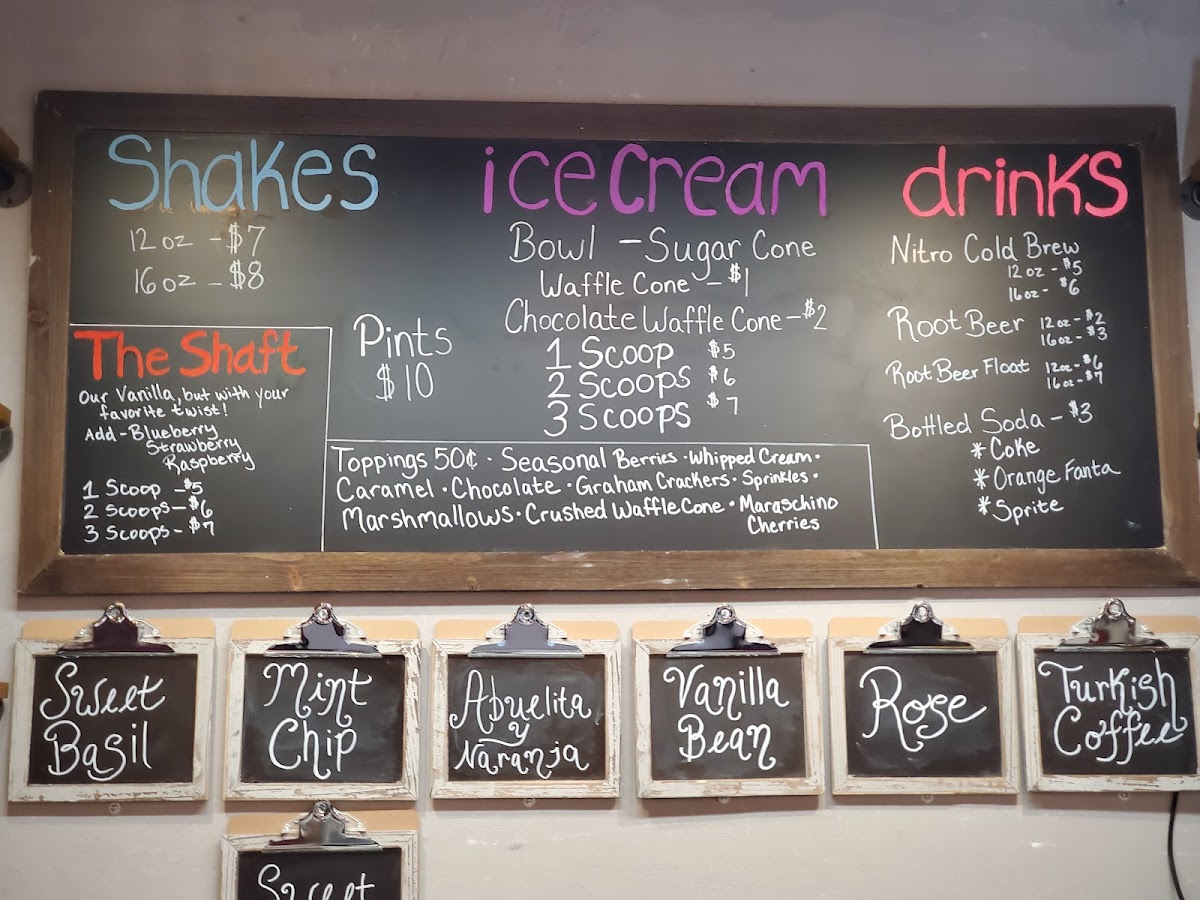 Shakes
12 oz - $7
16 oz - $8
The Shaft
Our Vanilla, but with your
favorite twist!
Add - Blueberry
Strawberry
Raspberry
1 Scoop - $5
2 Scoops - $6
3 Scoops - $7
Pints
$10
ice cream
Bowl - Sugar Cone
Waffle Cone - $1
Chocolate Waffle Cone - $2
1 Scoop $5
2 Scoops $6
3 Scoops $7
Toppings 50¢ · Seasonal Berries · Whipped Cream ·
Caramel · Chocolate · Graham Crackers · Sprinkles ·
Marshmallows · Crushed Waffle Cone · Maraschino
Cherries
drinks
Nitro Cold Brew
12 oz - $5
16 oz - $6
Root Beer 12 oz - $2
16 oz - $3
Root Beer Float 12 oz - $6
16 oz - $7
Bottled Soda - $3
* Coke
* Orange Fanta
* Sprite
Sweet
Basil
Mint
Chip
Abuelita
y
Naranja
Vanilla
Bean
Rose
Turkish
Coffee
Sweet